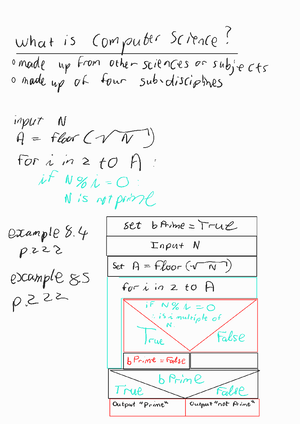 what is computer science?
o made up from other sciences or subjects
o made up of four sub-disciplines
input N
A = floor(√N)
for i in 2 to A :
if N % i = 0
N is not prime
example 8.4
p222
example 8.5
p.222
set bPrime = True
Input N
Set A = Floor(√N)
for i in 2 to A
if N % i = 0
i is a multiple of
N
True
False
bPrime = False
bPrime
True
False
Output "Prime"
Output "not Prime"